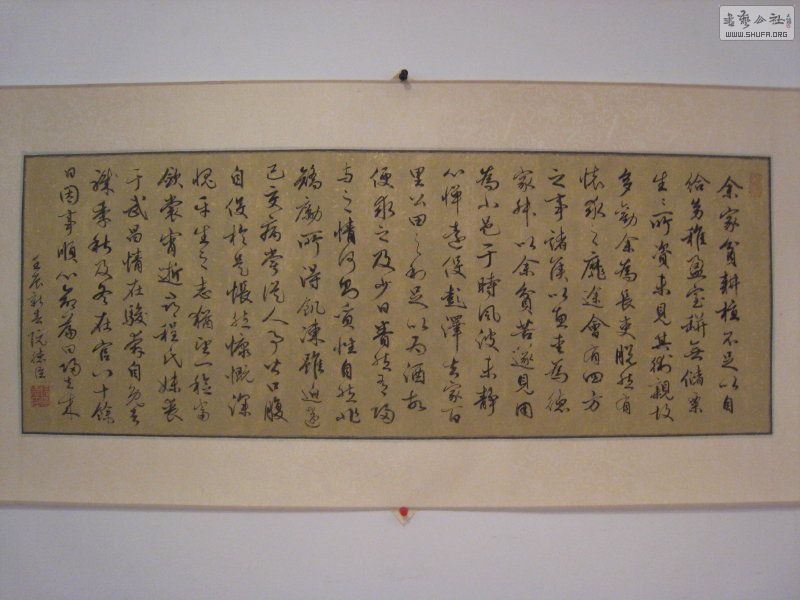 余家貧耕植不足以自
給幼稚盈室缾無儲粟
生〻所資未見其術親故
多勸余為長吏脫然有
懷求之靡途會有四方
之事諸侯以惠愛為德
家叔以余貧苦遂見用
為小邑于時風波未靜
心憚遠役彭澤去家百
里公田之利足以為酒故
便求之及少日眷然有歸
与之情何則質性自然非
矯勵所得飢凍雖迫違
已交病嘗從人事皆口腹
自役於是悵然慷慨深
愧平生之志猶望一稔當
斂裳宵逝尋程氏妹喪
于武昌情在駿奔自免去
職季秋及冬在官八十餘
日因事順心命篇曰歸去來
壬辰新春阮德
書藝公社
WWW.SHUFA.ORG